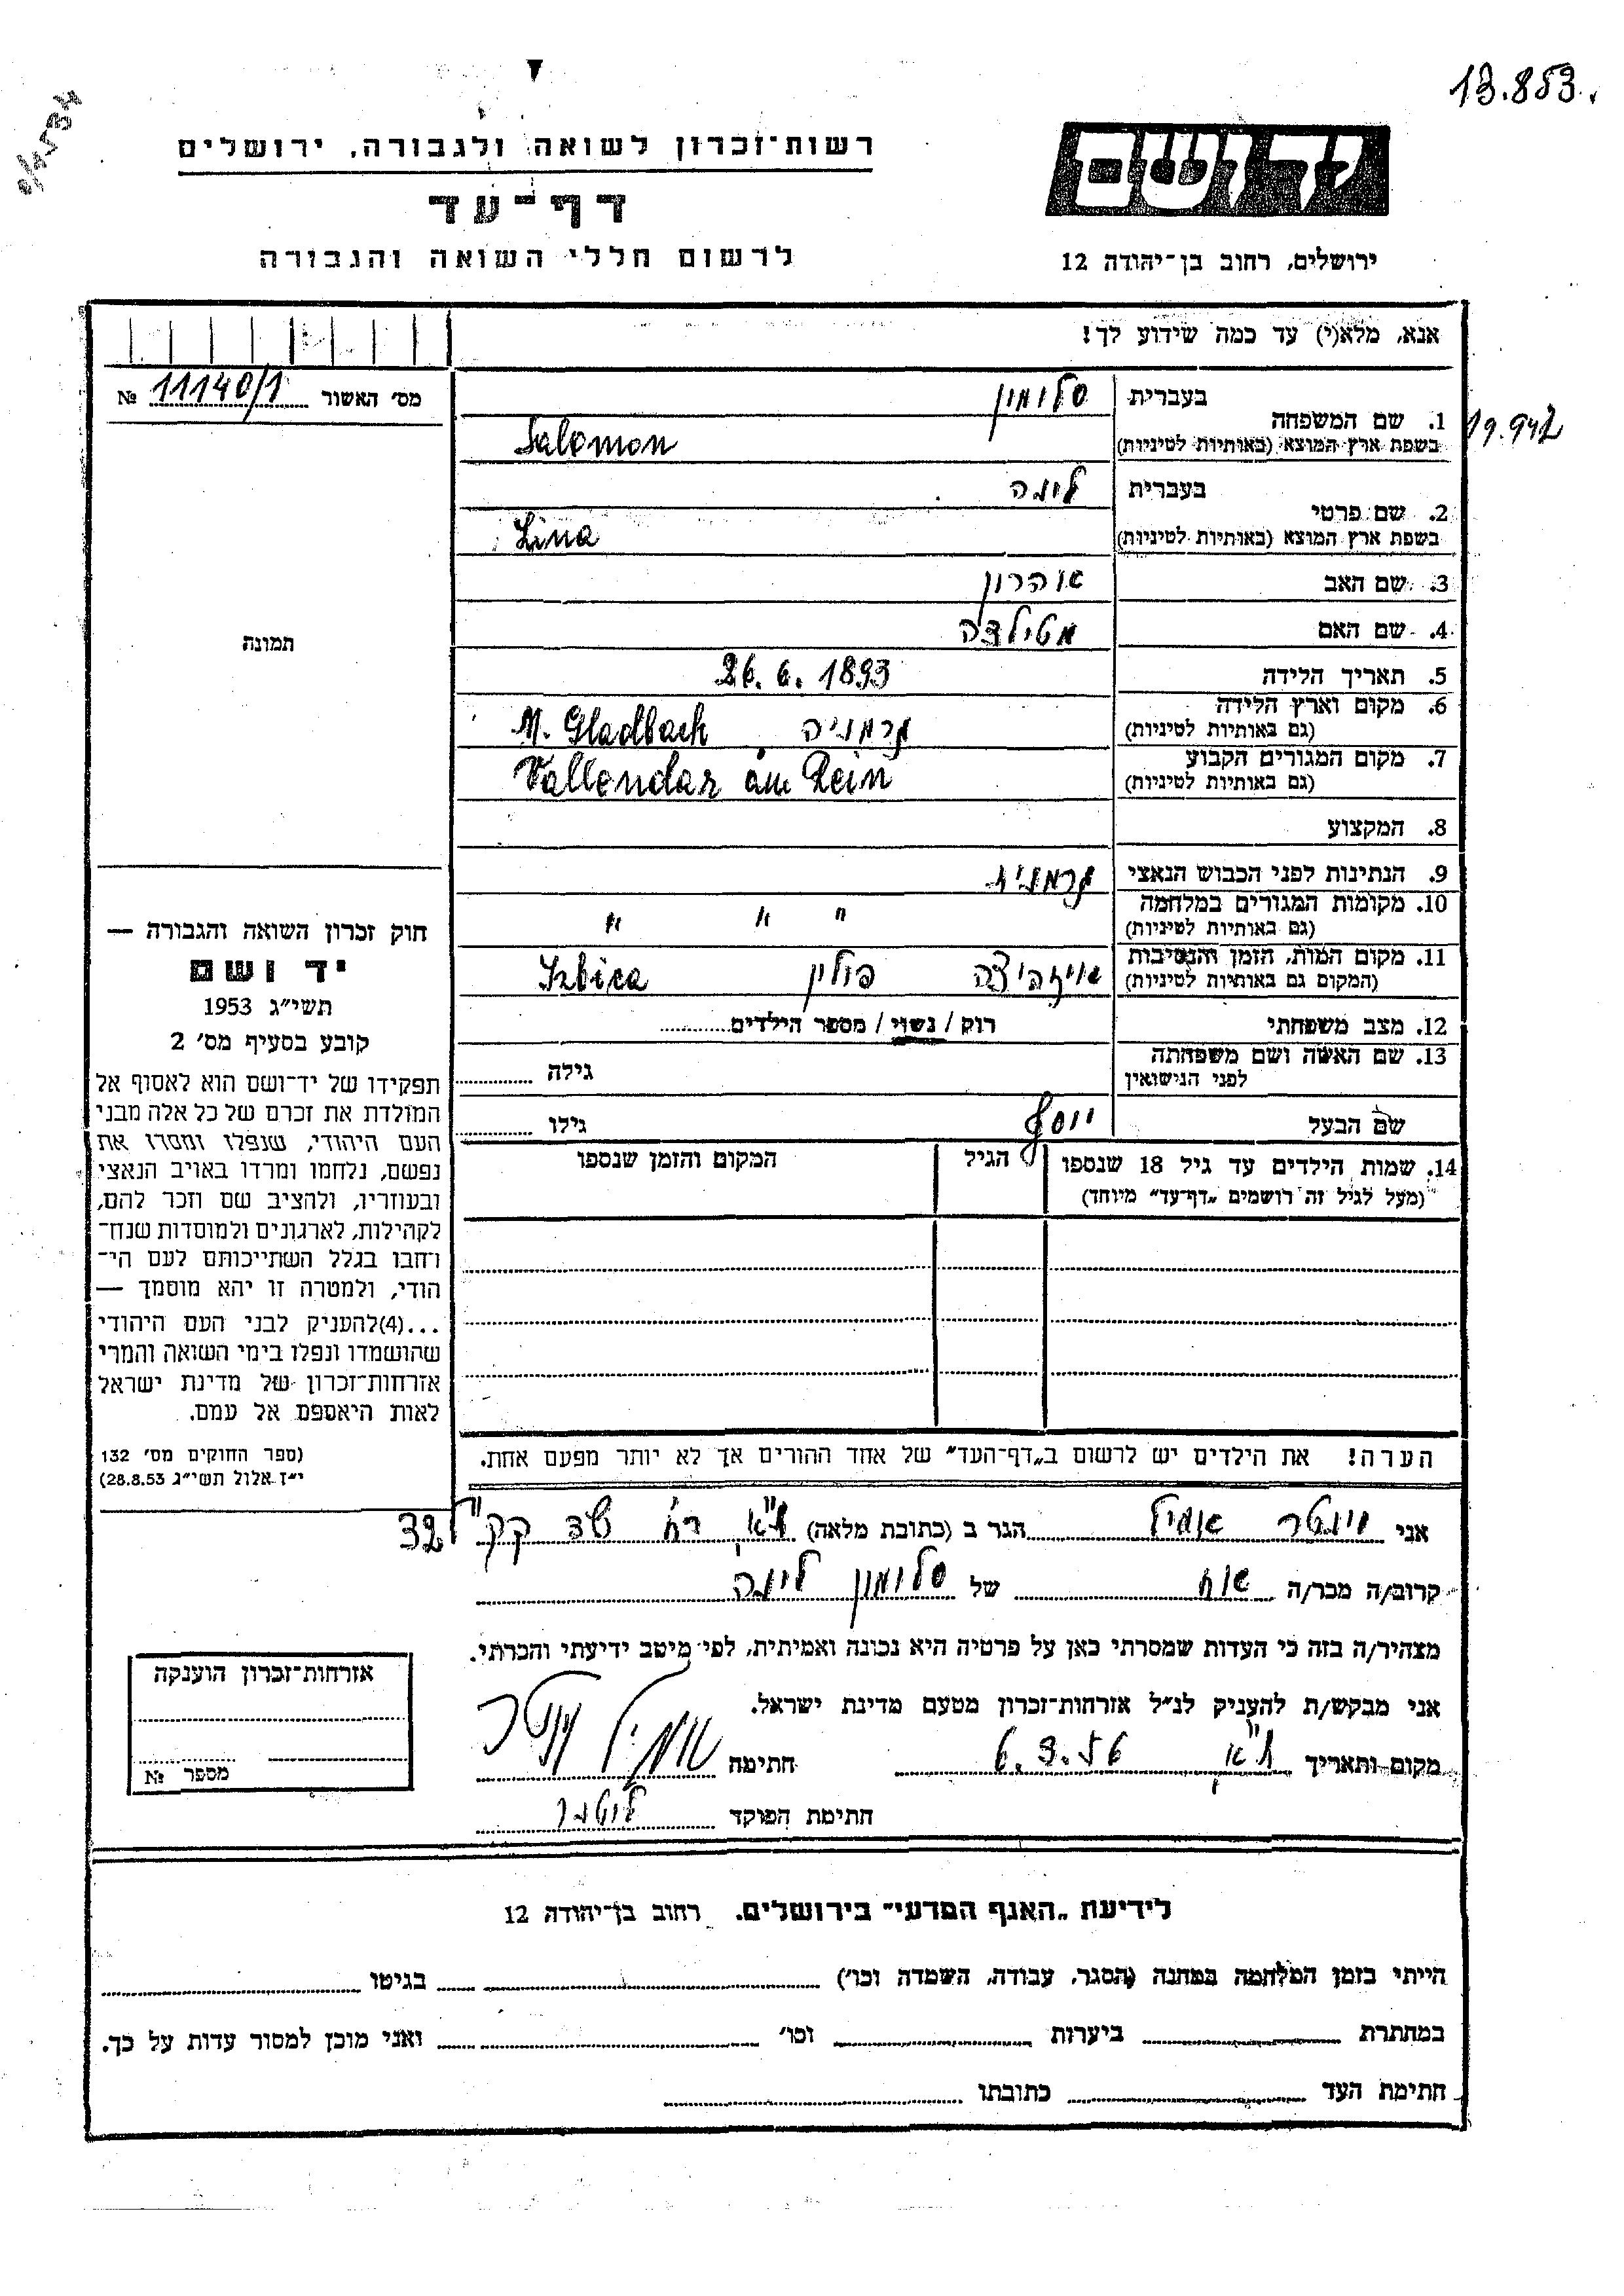 13.853.
רשות־זכרון לשואה ולגבורה, ירושלים
יד ושם
דף־עד
לרשום חללי השואה והגבורה
ירושלים, רחוב בן־יהודה 12
אנא, מלא(י) עד כמה שידוע לך!
מס׳ האשור 11140/1 №
1. שם המשפחה
בעברית סלומון
בשפת ארץ המוצא (באותיות לטיניות) Salomon
19.942
2. שם פרטי
בעברית לינה
בשפת ארץ המוצא (באותיות לטיניות) Lina
3. שם האב אהרון
4. שם האם מטילדה
5. תאריך הלידה 26. 6. 1893
6. מקום וארץ הלידה
(גם באותיות לטיניות) גרמניה M. Gladbach
7. מקום המגורים הקבוע
(גם באותיות לטיניות) Vallendar am Rein
8. המקצוע
9. הנתינות לפני הכבוש הנאצי גרמנית
10. מקומות המגורים במלחמה
(גם באותיות לטיניות) " " "
11. מקום המות, הזמן והנסיבות
(המקום גם באותיות לטיניות) איזביצה פולין Izbica
12. מצב משפחתי רוק / נשוי / מספר הילדים
13. שם האשה ושם משפחתה
לפני הנישואין גילה
שם הבעל יוסף גילו
14. שמות הילדים עד גיל 18 שנספו
(מעל לגיל זה רושמים „דף־עד״ מיוחד)
הגיל
המקום והזמן שנספו
תמונה
חוק זכרון השואה והגבורה —
יד ושם
תשי״ג 1953
קובע בסעיף מס׳ 2
תפקידו של יד־ושם הוא לאסוף אל
המולדת את זכרם של כל אלה מבני
העם היהודי, שנפלו ומסרו את
נפשם, נלחמו ומרדו באויב הנאצי
ובעוזריו, ולהציב שם וזכר להם,
לקהילות, לארגונים ולמוסדות שנח־
רחבו בגלל השתייכותם לעם הי־
הודי, ולמטרה זו יהא מוסמך —
...(4)להעניק לבני העם היהודי
שהושמדו ונפלו בימי השואה והמרי
אזרחות־זכרון של מדינת ישראל
לאות היאספם אל עמם.
(ספר החוקים מס׳ 132
י״ז אלול תשי״ג 28.8.53)
הערה! את הילדים יש לרשום ב„דף־העד״ של אחד ההורים אך לא יותר מפעם אחת.
אני וינטר אמיל הגר ב (כתובת מלאה) ת״א שד קק״ל 32
קרוב/ה מכר/ה אח של סלומון לינה
מצהיר/ה בזה כי העדות שמסרתי כאן על פרטיה היא נכונה ואמיתית, לפי מיטב ידיעתי והכרתי.
אני מבקש/ת להעניק לנ״ל אזרחות־זכרון מטעם מדינת ישראל.
מקום ותאריך ת״א 6.3.56 חתימה אמיל וינטר
חתימת הפוקד
אזרחות־זכרון הוענקה
מספר №
לידיעת „האגף המדעי״ בירושלים, רחוב בן־יהודה 12
הייתי בזמן המלחמה במחנה (הסגר, עבודה, השמדה וכו׳) בגיטו
במחתרת ביערות וכו׳ ואני מוכן למסור עדות על כך.
חתימת העד כתובתו